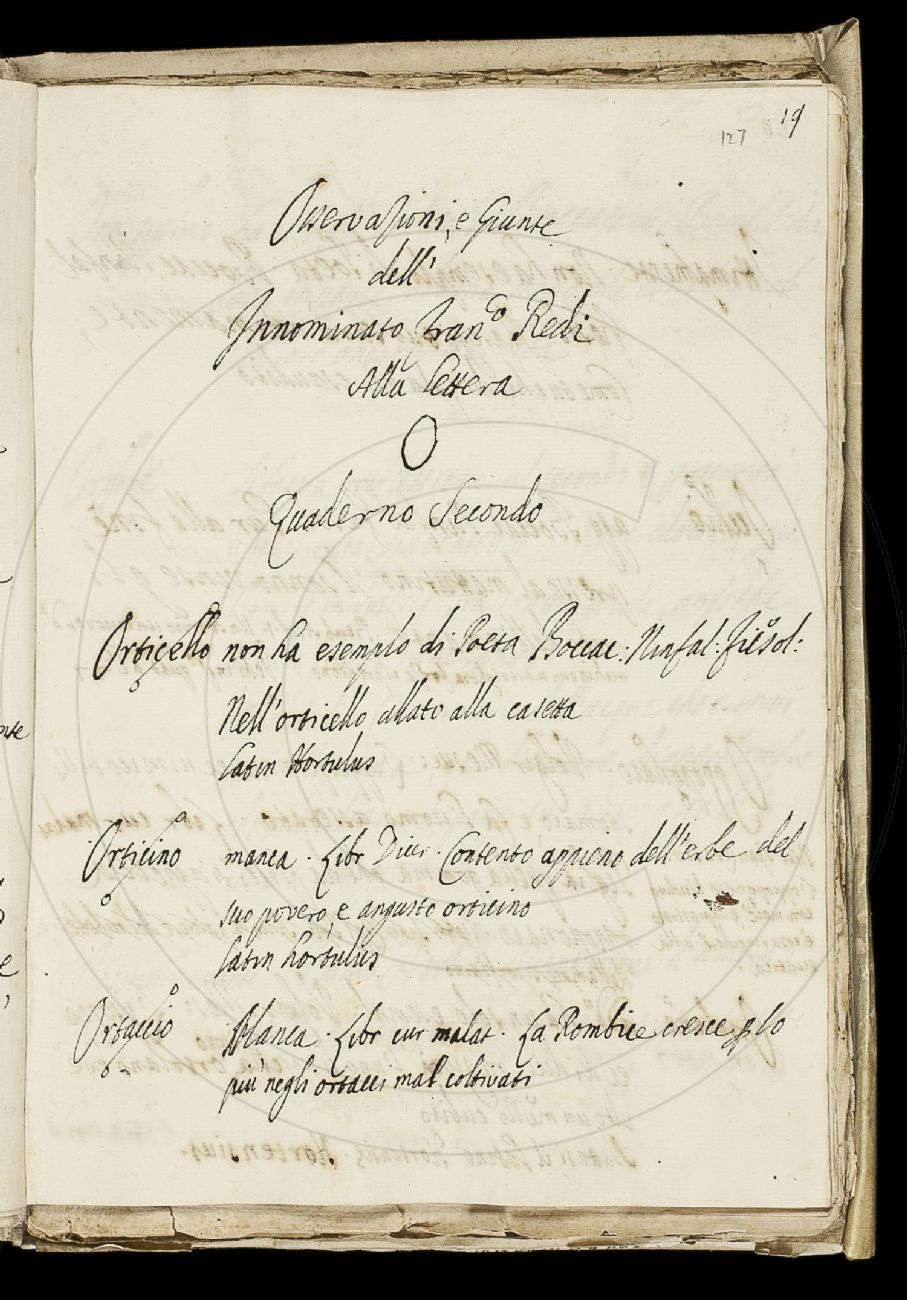 127 19
Osservazioni, e Giunte
dell'
Innominato Fran.co Redi
Alla Lettera
O
Quaderno Secondo
Orticello non ha esempio di Poeta Boccac: Ninfal: Fiesol:
Nell'orticello allato alla casetta
Latin Hortulus
Orticino manca. Libr Dicer. Contento appieno dell'erbe del
suo povero, e angusto orticino
Latin hortulus
Ortaccio Manca. Libr cur malat. La Rombice cresce p lo
più negli ortacci mal coltivati